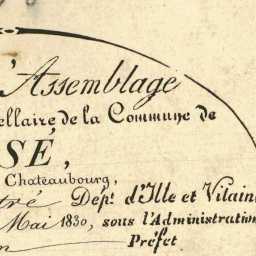 d'Assemblage
ellaire de la Commune de
SÉ,
Chateaubourg,
tré Dép.t d'Ille et Vilaine
Mai 1830, sous l'Administration
Préfet